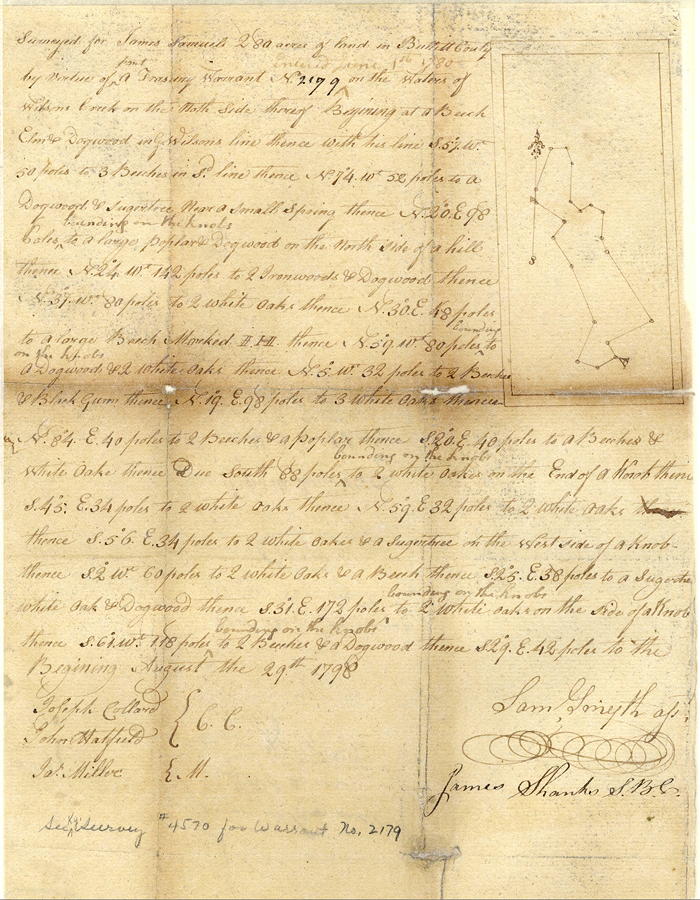 Surveyed for James Samuels 280 acres of land in Bullitt County
entered June 1st 1780
by Vertue of part
a Treasury Warrant No. 2179 on the Waters of
Wilsons Creek on the North Side thereof Begining at a Beech
Elm & Dogwood in Wilsons line thence with his line S. 51. Wt.
50 poles to 3 Beeches in Sd. line thence N 74. Wt 52 poles to a
Dogwood & Sugartree Near a Small Spring thence N. 20. E 98
bounding on the knobs
Poles, to a large poplar & Dogwood on the North side of a hill
thence N. 24. Wt 142 poles to 2 Ironwoods & Dogwood thence
N. 37. Wt 80 poles to 2 white Oaks thence N. 30 E. 48 poles
bounding
to a large Beech Marked thence N. 59. Wt 80 poles, to
on the knobs
a Dogwood & 2 white Oaks thence N. 5. Wt. 32 poles to 2 Beeches
& Black Gumm thence N. 19. E. 98 poles to 3 white Oaks thence
N. 84. E. 40 poles to 2 Beeches & a poplar thence S. 20. E. 40 poles to a Beeches &
bounding on the knobs
White Oake thence Due South 88 poles, to 2 white oakes on the End of a Knob thence
S. 45. E. 34 poles to 2 white oaks thence N. 59. E 32 poles to 2 white oaks
thence S. 56. E. 34 poles to 2 white Oakes & a Sugartree on the West side of a knob
thence S. 2 Wt 60 poles to 2 white Oaks & a Beech thence S. 25. E. 38 poles to a Sugartree
bounding on the knobs
white Oak & Dogwood thence S. 31. E. 172 poles to 2 white oaks on the Side of a Knob
bounding on the knobs
thence S. 61. Wt. 118 poles, to 2 Beeches & a Dogwood thence S. 29. E. 42 poles to the
Begining August the 29th 1798
Joseph Collard
John Hatfield } C. C.
Jas. Miller { M.
Saml. Smyth ast.
James Shanks S. B. C.
See Survey #4570 for Warrant No. 2179